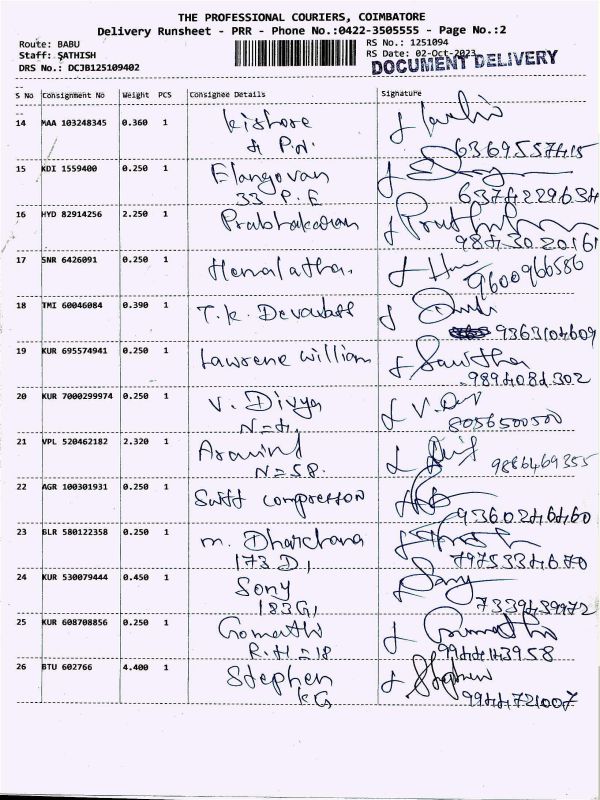 THE PROFESSIONAL COURIERS, COIMBATORE
Delivery Runsheet - PRR - Phone No.:0422-3505555 - Page No.:2
Route: BABU
Staff: SATHISH
DRS No.: DCJB125109402
RS No.: 1251094
RS Date: 02-Oct-2023
DOCUMENT DELIVERY
S No Consignment No Weight PCS Consignee Details Signature
14 MAA 103248345 0.360 1 Kishore
6369557415
15 KDI 1559400 0.250 1 Elangovan
33 P.E 6374229634
16 HYD 82914256 2.250 1 Prabhakaran
9843020161
17 SNR 6426091 0.250 1 Hemalatha.
9600966586
18 TMI 60046084 0.390 1 T.K. Devadass
9363104609
19 KUR 695574941 0.250 1 Lawrene William
9894084302
20 KUR 7000299974 0.250 1 V. Divya
8056500500
21 VPL 520462182 2.320 1 Aravind
N=58. 9886469355
22 AGR 100301931 0.250 1 Swift compressor
9360246460
23 BLR 580122358 0.250 1 m. Dharchana
173 D, 7975334670
24 KUR 530079444 0.450 1 Sony Sony
183G, 7339439972
25 KUR 608708856 0.250 1 Gomathi Gomathi
R.H=18 9944143958
26 BTU 602766 4.400 1 Stephen Stephen
KG 9944721007